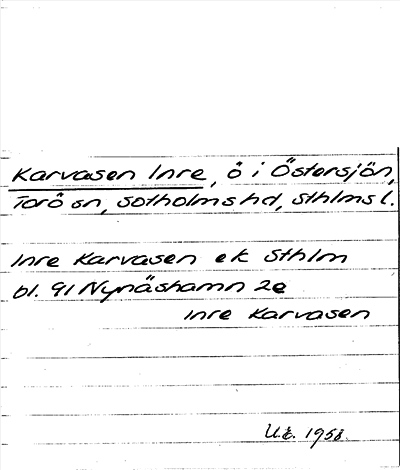 Karvasen Inre, ö i Östersjön,
Torö sn, Sotholms hd, Sthlms l.
Inre Karvasen ek Sthlm
bl. 91 Nynäshamn 2e
Inre Karvasen
1958